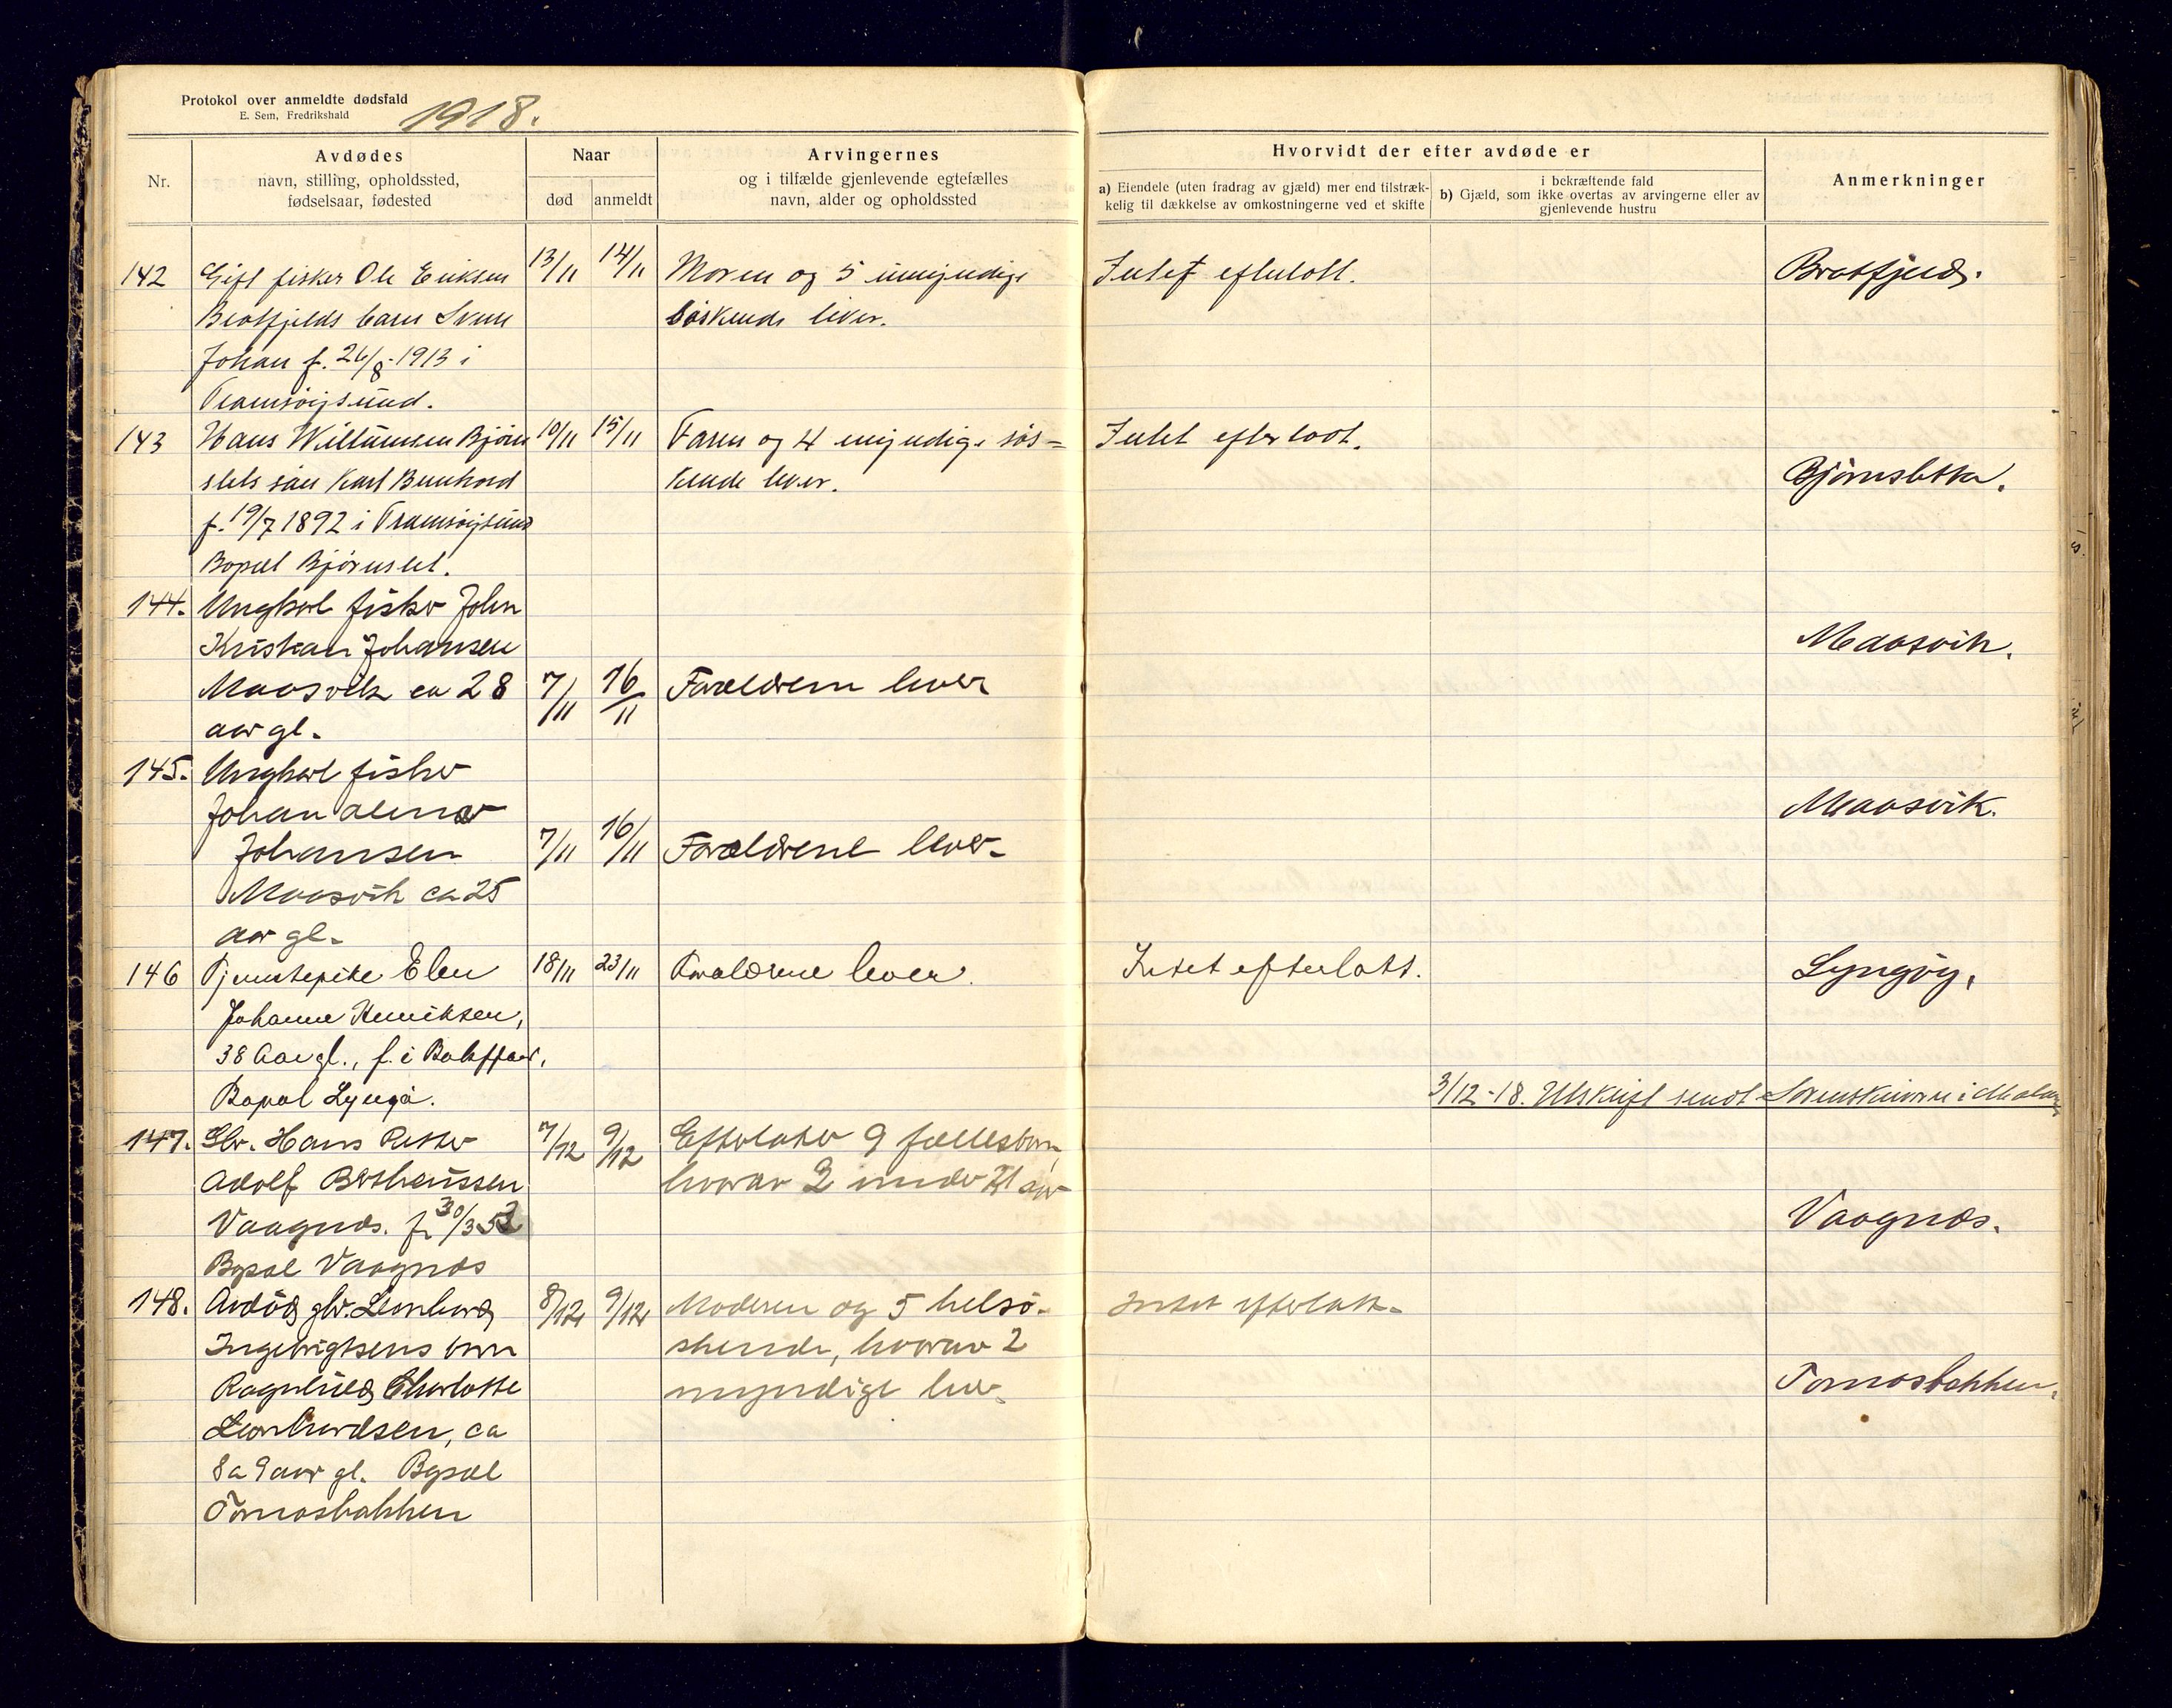 Protokol over anmeldte dødsfald
E. Sem, Fredrikshald
1918.
Nr.
Avdødes
navn, stilling, opholdssted,
fødselsaar, fødested
Naar
død
anmeldt
Arvingernes
og i tilfælde gjenlevende egtefælles
navn, alder og opholdssted
Hvorvidt der efter avdøde er
a) Eiendele (uten fradrag av gjæld) mer end tilstræk-
kelig til dækkelse av omkostningerne ved et skifte
i bekræftende fald
b) Gjæld, som ikke overtas av arvingerne eller av
gjenlevende hustru
Anmerkninger
142 Gift fisker Ole Eriksen 13/11 14/11 Moren og 5 umyndige Intet efterlatt. Bratfjeld.
Bratfjelds barn Svein søskende lever.
Johan f. 26/8-1913 i
Tromsøysund.
143 Hans Willumsen Bjørn 10/11 15/11 Faren og 4 umyndige søs= Intet efterladt.
slets søn Karl Bernhard kende lever. Bjørnsletta.
f. 19/7 1892 i Tromsøysund
Bopæl Bjørnslet.
144. Ungkarl fisker John
Kristian Johansen Maasvik.
Maasvik ca 28 7/11 16/11 Forældrene lever
aar gl.
145. Ungkarl fisker
Johan Maasvik.
Johansen 7/11 16/11 Forældrene lever.
Maasvik ca 25
aar gl.
146 Tjenestepike Elen 18/11 23/11 Forældrene lever. Intet efterlatt. Lyngøy.
Johanne Henriksen,
38 Aar gl., f. i Balsfjord,
Bopæl Lyngø. 3/12-18. Utskrift sendt Sorenskriveren i Malang
147. Gbr. Hans Petter 7/12 9/12 Efterlater 9 fællesbarn,
Adolf Bertheussen hvorav 2 under 21 aar
Vaagnes. f. 30/3 52 Vaagnes.
Bopæl Vaagnes
148. Avdød gbr. Leonhard 8/12 9/12 Moderen og 5 helsø- Intet efterlatt.
Ingebrigtsens barn skende, hvorav 2
Ragnhild Charlotte myndige lever. Tomasbakken.
Leonhardsen, ca
8 a 9 aar gl. Bopæl
Tomasbakken